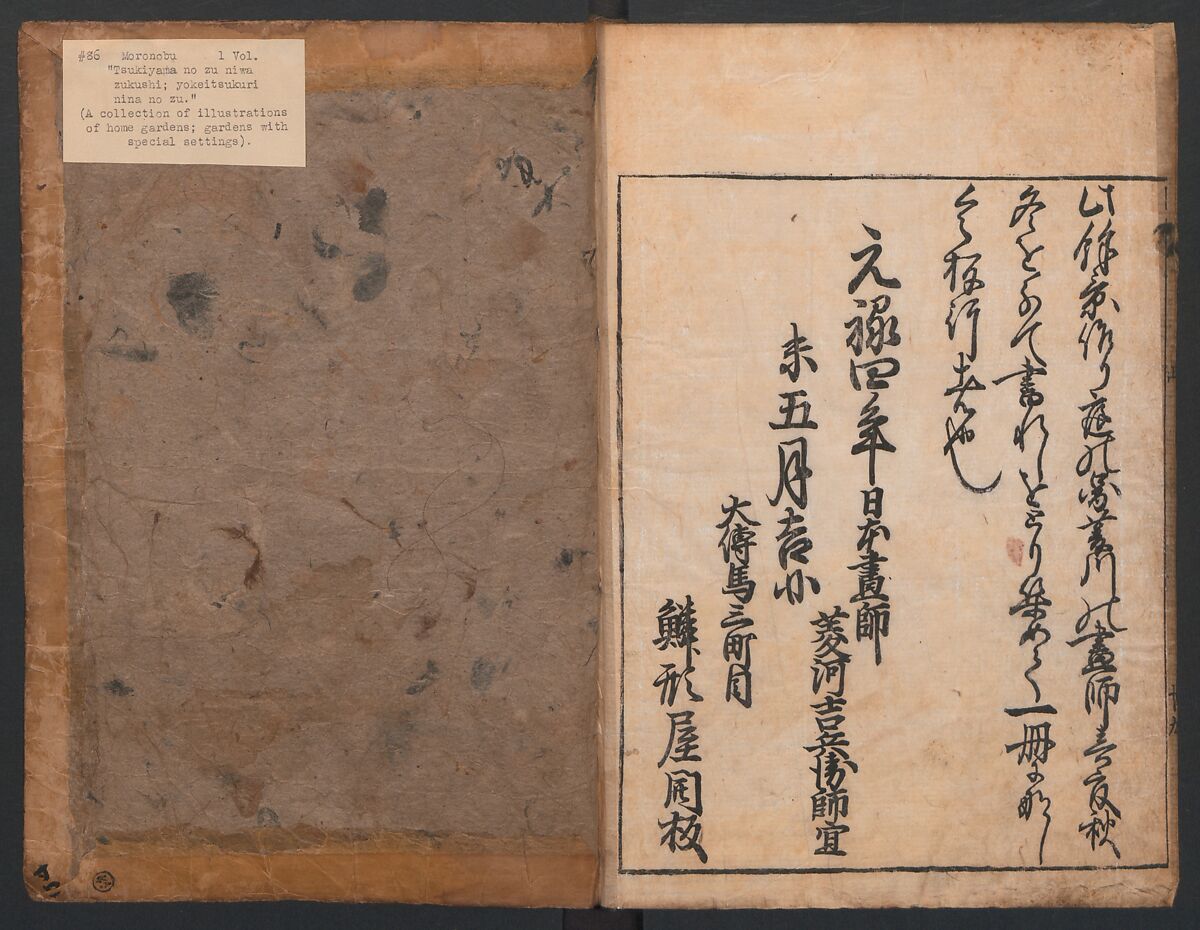 #86 Moronobu 1 Vol.
"Tsukiyama no zu niwa
zukushi; yokeitsukuri
nina no zu."
(A collection of illustrations
of home gardens; gardens with
special settings).
此餘景作り庭の圖菱川の畫師春夏秋
冬を 書 とり集めて一冊になし
令板行者也
元禄四年 日本畫師
菱河吉兵衛師宣
未五月吉日
大傳馬三町目
鱗形屋開板